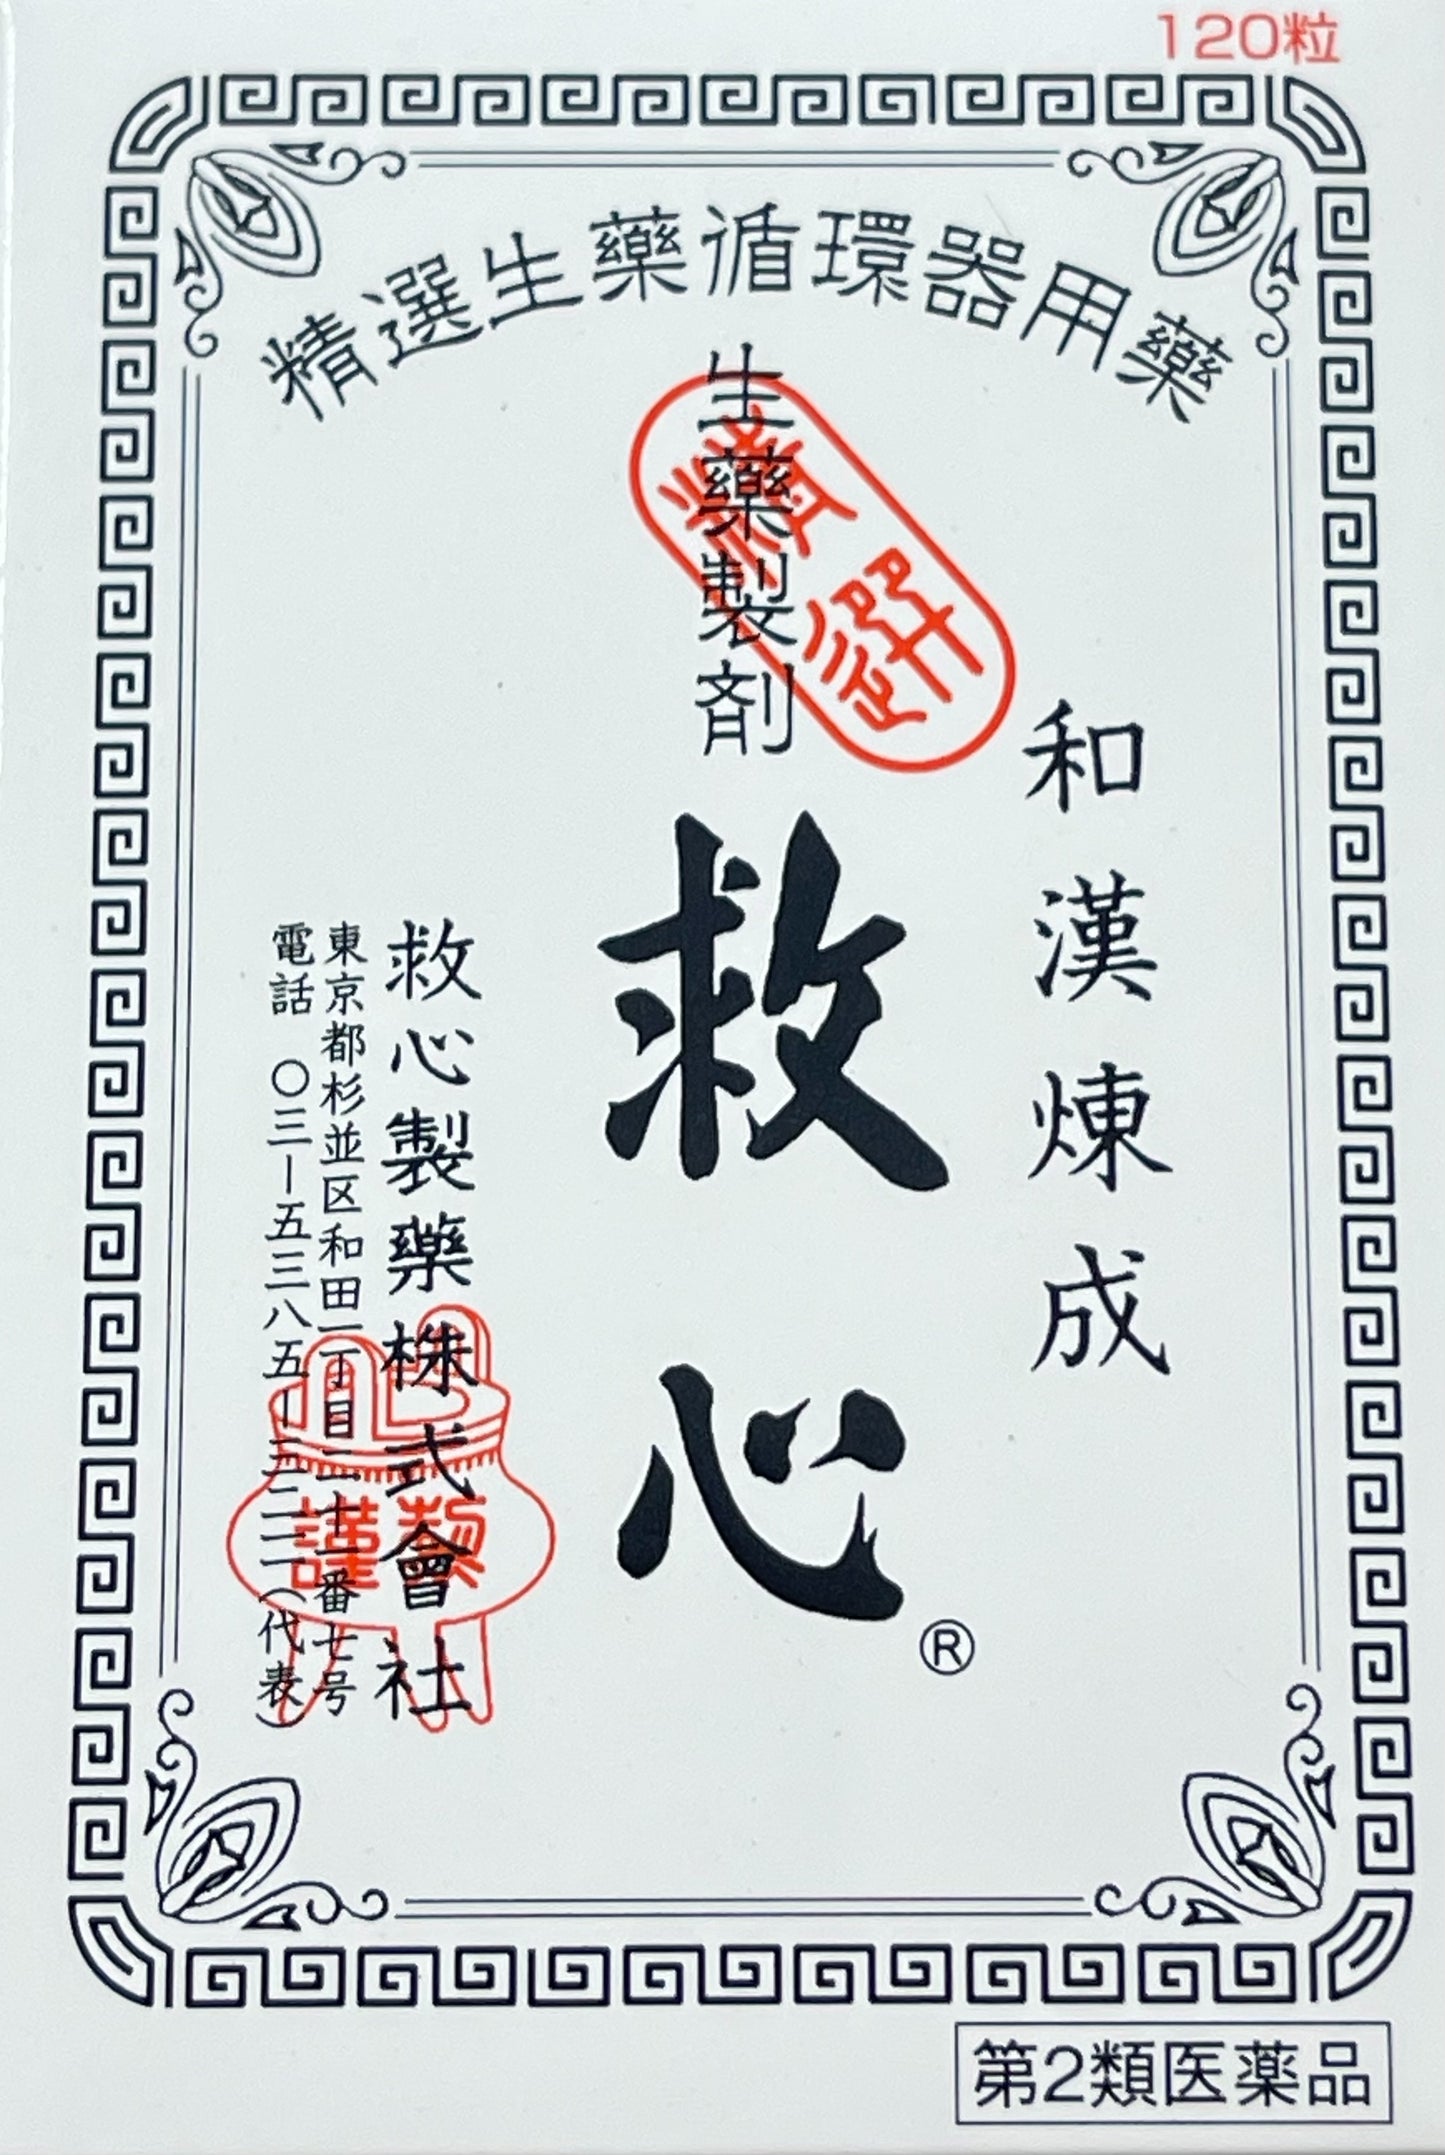 120粒
精選生藥循環器用藥
和漢煉成
生藥製剤
救心
®
救心製藥株式會社
東京都杉並区和田一丁目二十一番七号
電話 〇三ー五三八五ー三二一一（代表）
謹製
第2類医薬品